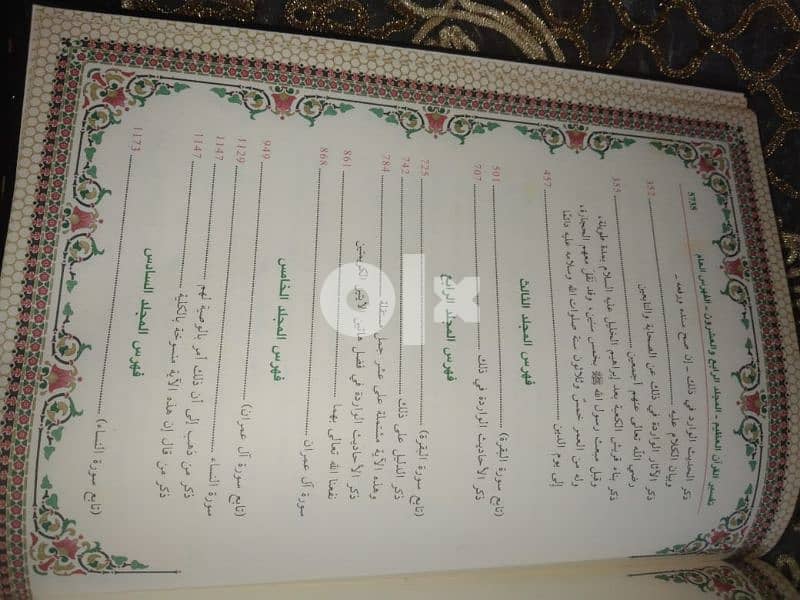 تفسير القرآن العظيم - المجلد الرابع والعشرون - الفهرس العام 5735
ذكر الحديث الوارد في ذلك - إن صح سنده ورفعه -
وبيان الكلام عليه 352
ذكر الآثار الواردة في ذلك عن الصحابة والتابعين
رضي الله تعالى عنهم أجمعين 355
ذكر بناء قريش الكعبة بعد إبراهيم الخليل عليه السلام بمدة طويلة،
وقبل مبعث رسول الله ﷺ بخمس سنين، وقد نقل معهم الحجارة،
وله من العمر خمس وثلاثون سنة صلوات الله وسلامه عليه دائمًا
إلى يوم الدين 457
فهرس المجلد الثالث
(تابع سورة البقرة) 501
ذكر الأحاديث الواردة في ذلك 707
فهرس المجلد الرابع
(تابع سورة البقرة) 725
ذكر الدليل على ذلك 742
وهذه الآية مشتملة على عشر جمل مستقلة 784
ذكر الأحاديث الواردة في فضل هاتين الآيتين الكريمتين
نفعنا الله تعالى بهما 861
868
فهرس المجلد الخامس
سورة آل عمران 949
(تابع سورة آل عمران) 1129
سورة النساء 1147
ذكر من ذهب إلى أن ذلك أمر بالوصية لهم 1147
ذكر من قال إن هذه الآية منسوخة بالكلية
فهرس المجلد السادس
(تابع سورة النساء) 1173
olx